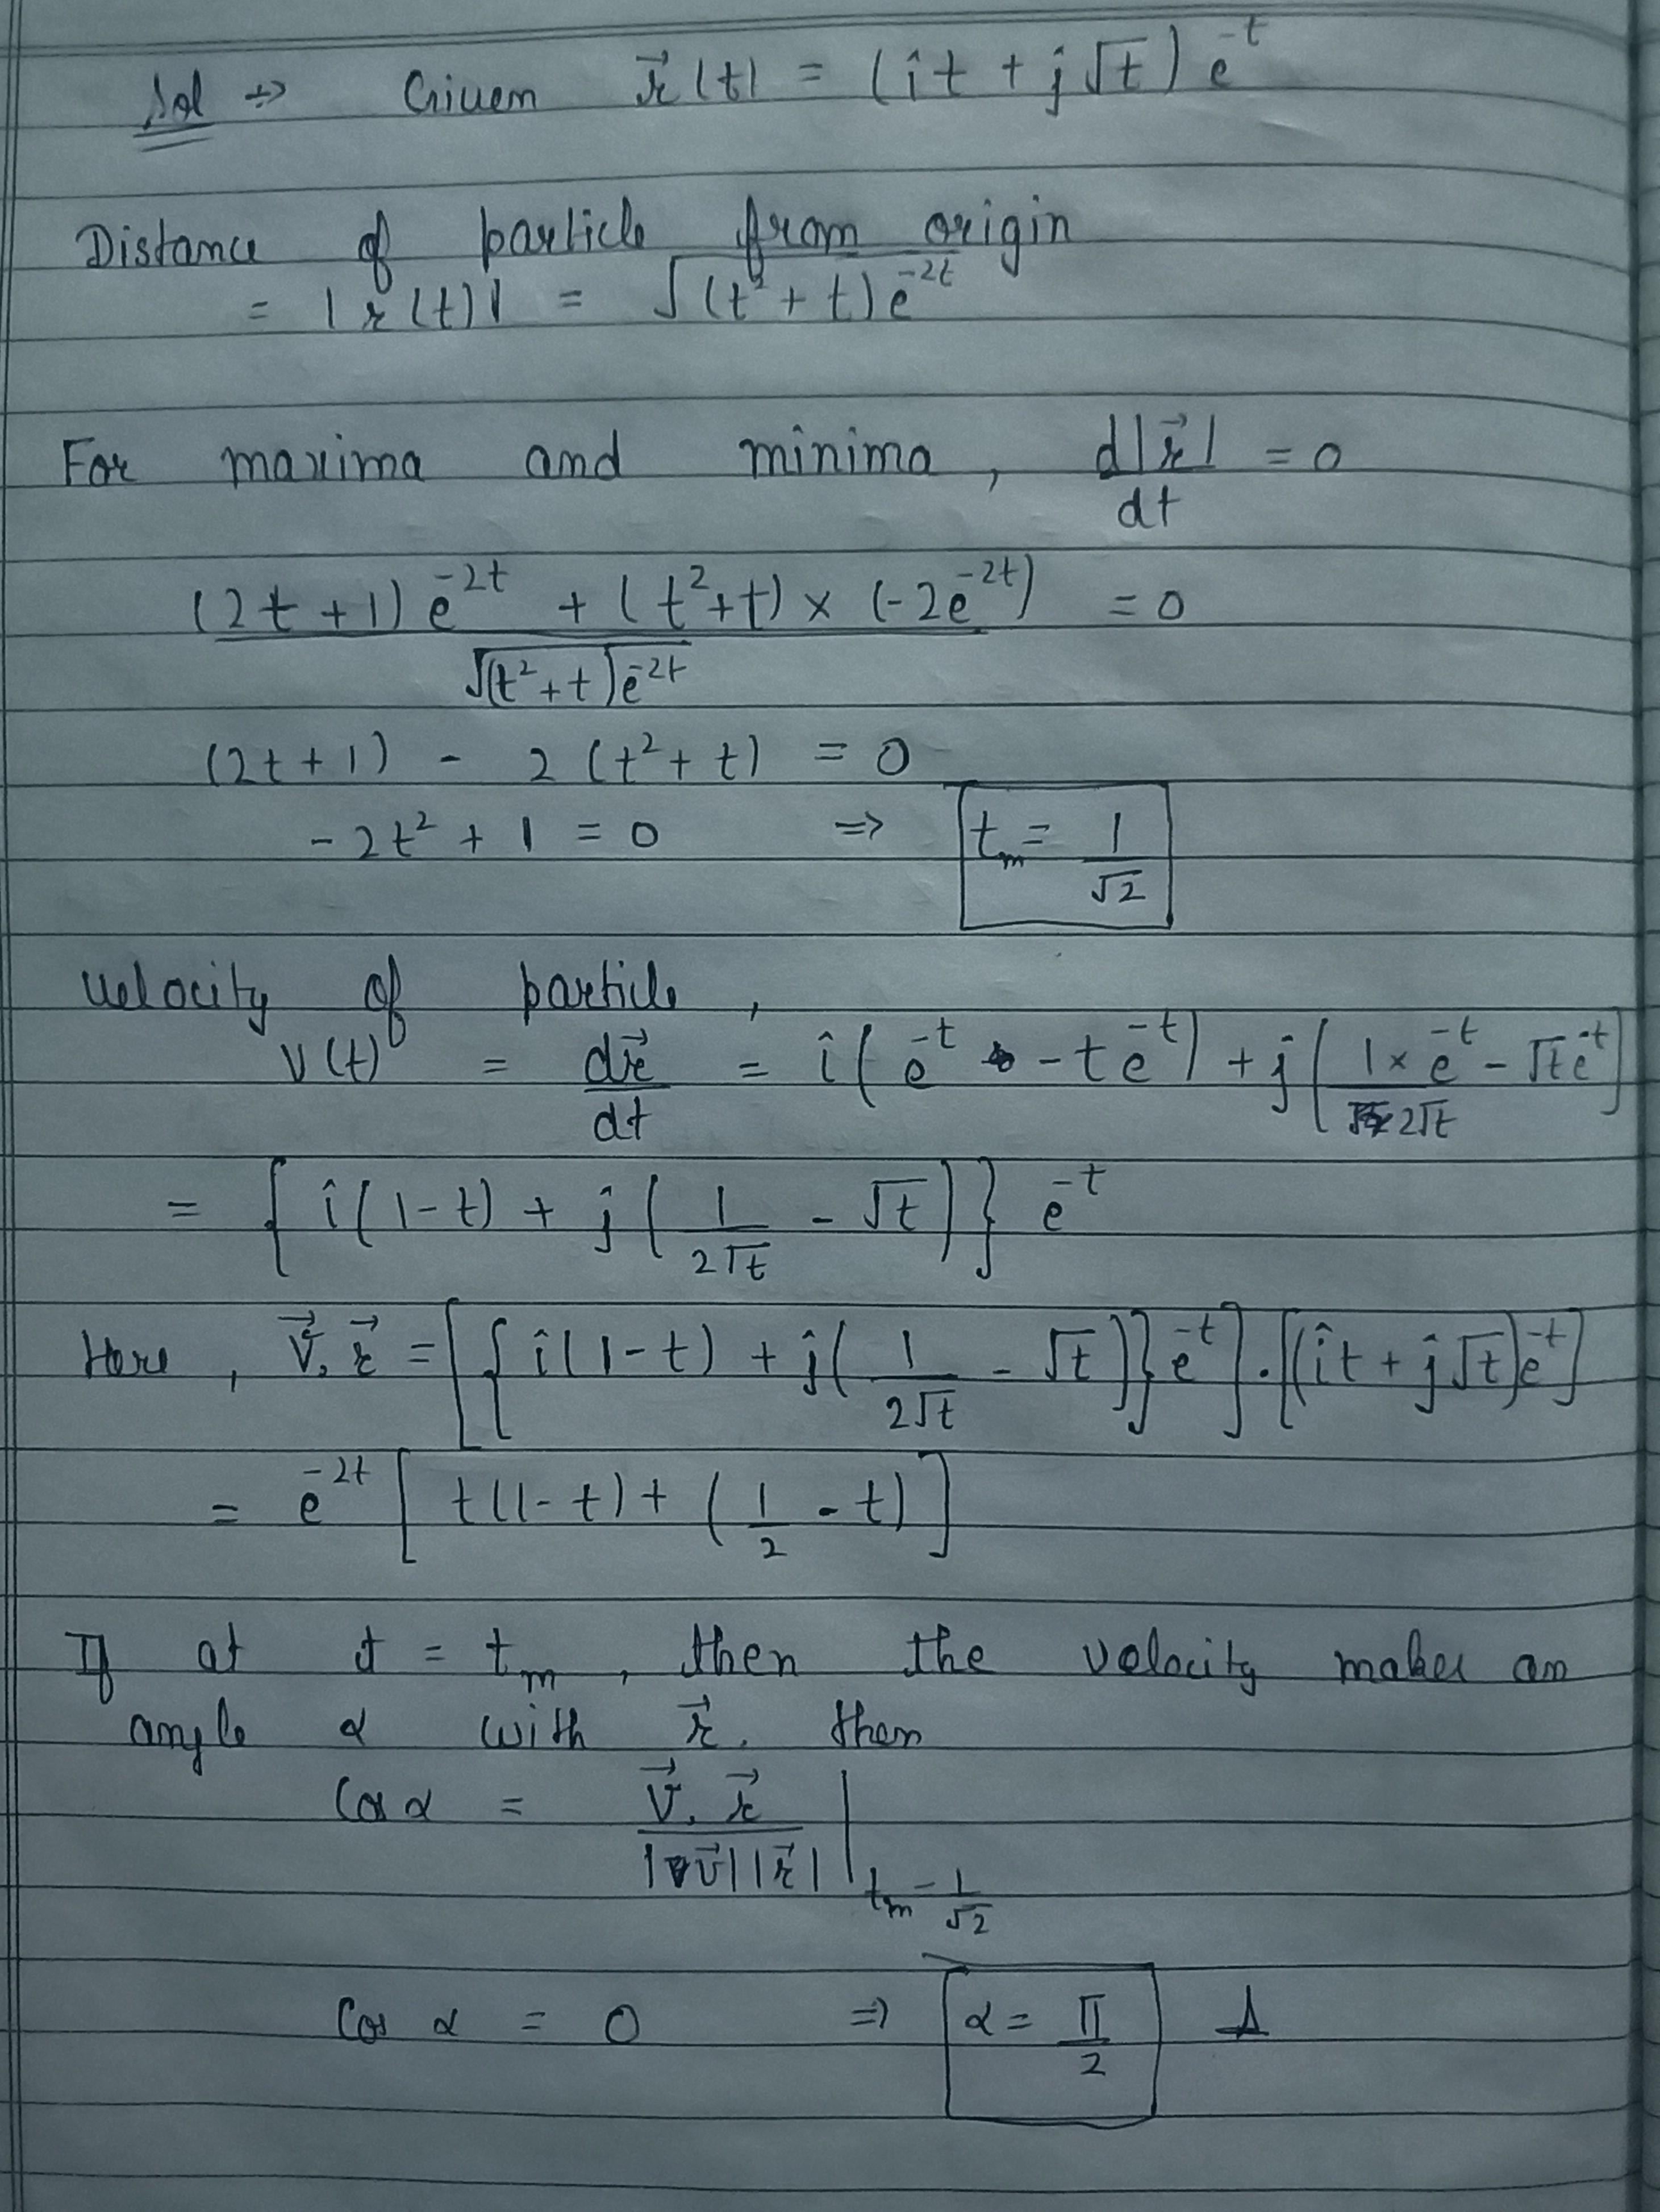 Sol ⇒ Given r⃗(t) = (î t + ĵ √t) e^-t
Distance of particle from origin
= |r(t)| = √((t² + t) e^-2t)
For maxima and minima, d|r⃗|/dt = 0
((2t + 1) e^-2t + (t² + t) × (-2e^-2t)) / √((t² + t) e^-2t) = 0
(2t + 1) - 2 (t² + t) = 0
-2t² + 1 = 0 ⇒ t_m = 1/√2
Velocity of particle,
V(t) = dr⃗/dt = î (e^-t - t e^-t) + ĵ (1 × e^-t/2√t - √t e^-t)
= { î (1-t) + ĵ (1/2√t - √t) } e^-t
Here, V⃗. r⃗ = [{ î (1-t) + ĵ (1/2√t - √t)} e^-t] . [(î t + ĵ √t) e^-t]
= e^-2t [ t(1-t) + (1/2 - t) ]
If at t = t_m, then the velocity makes an
angle α with r⃗. then
Cos α = V⃗. r⃗ / |v⃗| |r⃗| | t_m = 1/√2
Cos α = 0 ⇒ α = π/2